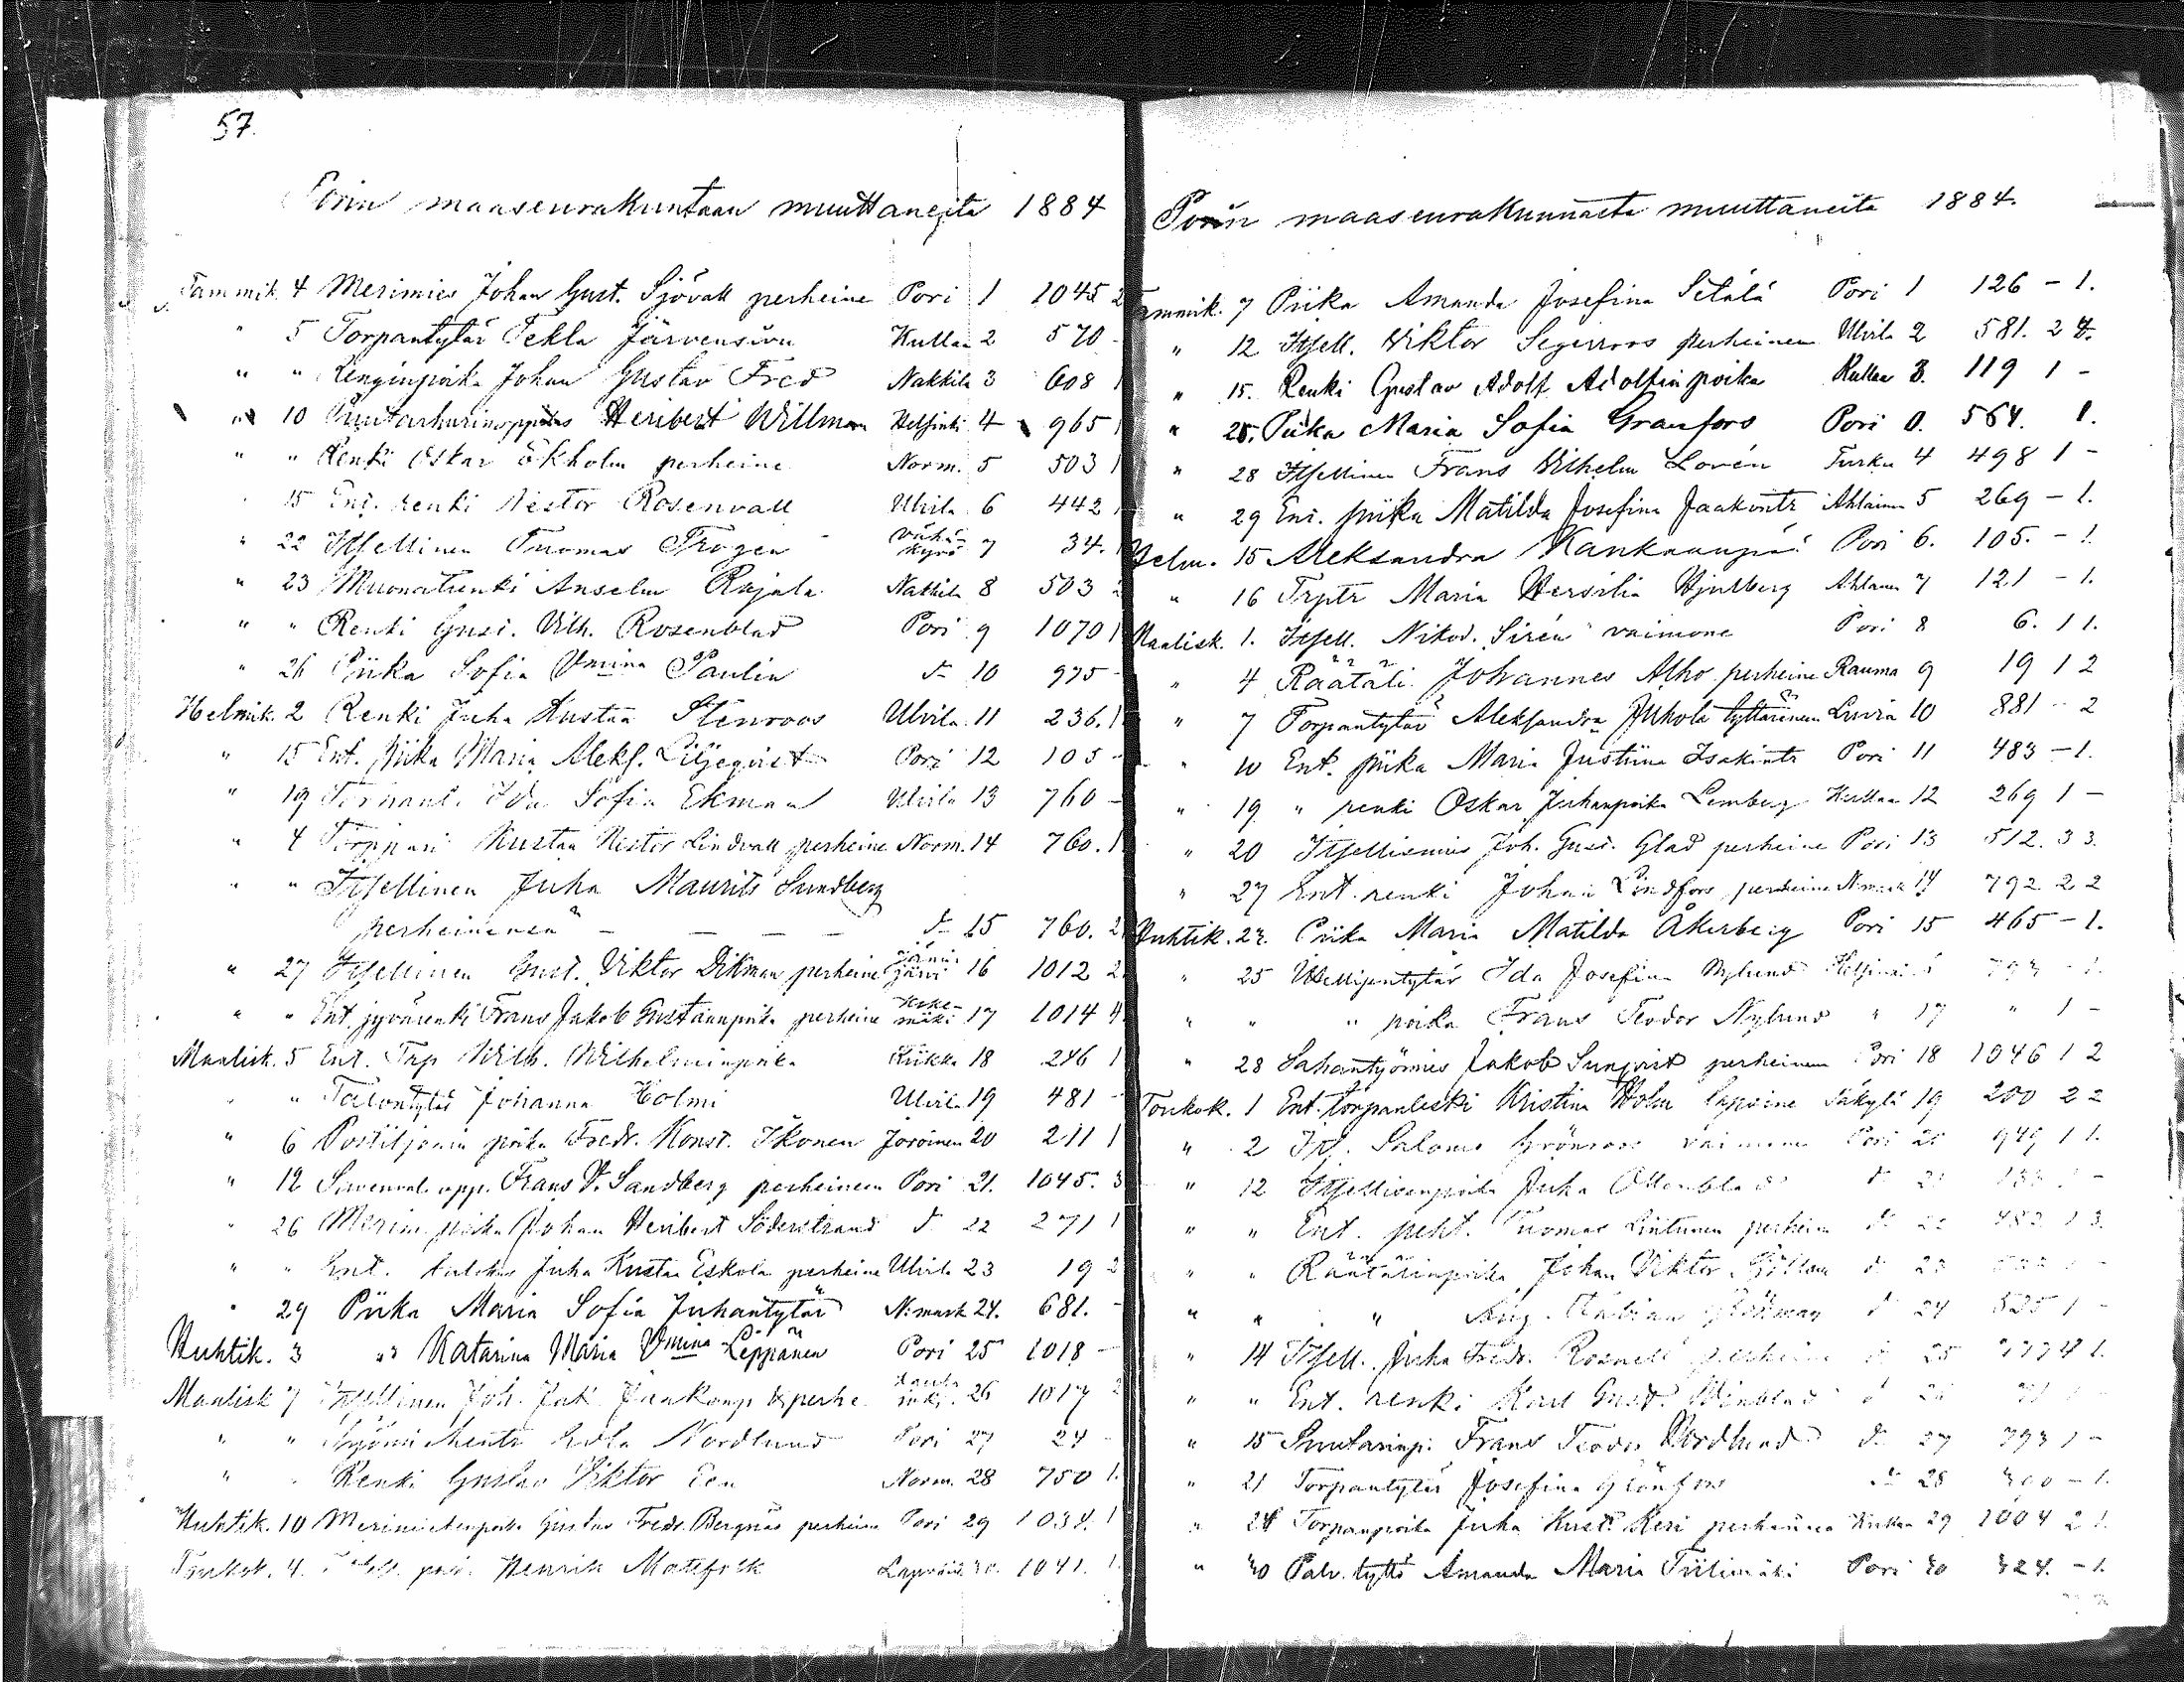 57.
Porin maaseurakuntaan muuttaneita 1884
Tammik. 4 Merimies Johan Gust. Sjövall perheine Pori 1 1045 2
" 5 Torpantytär Tekla Järvensivu Kullaa 2 570 -
" " Renginpoika Johan Gustav Fred Nakkila 3 608 1
" 10 Heribert Willman Helsinki 4 965 1
" " Renki Oskar Ekholm perheine Norm. 5 503 1
15 Ent. renki Nestor Rosenvall Ulvila 6 442
" 22 Itsellinen Tuomas Trogen Vähä-kyrö 7 34.
" 23 Muonatrenki Anselm Rajala Nakkila 8 503 2
" " Renki Gust. Vilh. Rosenblad Pori 9 1070 1
" 26 Piika Sofia Vmina Paulin d:o 10 975 -
Helmik. 2 Renki Juha Kustaa Stenroos Ulvila 11 236. 1
" 15 Ent. piika Maria Aleks. Liljeqvist Pori 12 105 -
" 19 Ida Sofia Ekman Ulvila 13 760 -
" 4 Torppari Kustaa Nestor Lindvall perheine Norm. 14 760. 1
" " Itsellinen Juha Maurits Sundberg
perheinensä - - - - d:o 15 760. 2
" 27 Itsellinen Gust. Viktor Dikman perheine järvi 16 1012 2
" " Ent. jyvärenki Frans Jakob Gustaanpoika perheine mäki 17 1014 4
Maalisk. 5 Ent. Trp Wilh. Wilhelminpoika Kiikka 18 246 1
" Talontytär Johanna Holmi Ulvila 19 481 -
" 6 Postiljonin poika Fredr. Konst. Ikonen Joroinen 20 211 1
" 12 opp. Frans V. Sandberg perheineen Pori 21. 1045. 3
" 26 Merim. poika Johan Heribert Söderstrand d:o 22 271 1
" " Ent. Juha Kustaa Eskola perheine Ulvila 23 19 2
" 29 Piika Maria Sofia Juhantytär N:mark 24. 681. -
Huhtik. 3 " Katarina Maria Vmina Leppänen Pori 25 1018 -
Maalisk 7 Itsellinen Joh. Jak. Jaakonp. perhe 26 1017 2
" " Nordlund Pori 27 24 -
" Renki Gustav Viktor Een Norm. 28 750 1.
Huhtik. 10 Merimiehenpoika Gustav Fredr. Bergnäs perheine Pori 29 1034. 1
Toukok. 4. Henrik 1041. 1.
Porin maaseurakunnasta muuttaneita 1884.
Tammik. 7 Piika Amanda Josefina Setälä Pori 1 126 - 1.
" 12 Itsell. Viktor Segerroos perheineen Ulvila 2 581. 2 4.
" 15. Renki Gustav Adolf Adolfinpoika Kullaa 3. 119 1 -
" 25. Piika Maria Sofia Granfors Pori 0. 564. 1.
" 28 Itsellinen Frans Vilhelm Lovén Turku 4 498 1 -
" 29 Ent. piika Matilda Josefina Jaakontr Ahlainen 5 269 - 1.
Helm. 15 Aleksandra Kankaanpää Pori 6. 105. - 1.
" 16 Trptr Maria Hersilia Hjulberg Ahlainen 7 121 - 1.
Maalisk. 1. Itsell. Nikod. Sirén vaimone Pori 8 6. 1 1.
" 4 Räätäli Johannes Alho perheine Rauma 9 19 1 2
" 7 Torpantytär Aleksandra Jukola tyttärineen Luvia 10 881 - 2
" 10 Ent. piika Maria Justiina Isakintr Pori 11 483 - 1.
" 19 " renki Oskar Juhanpoika Lemberg Kullaa 12 269 1 -
" 20 Itsellismies Joh. Gust. Glad perheine Pori 13 512. 3 3.
" 27 Ent. renki Johan Lindfors perheine N:mark 14 792 2 2
Huhtik. 22. Piika Maria Matilda Åkerberg Pori 15 465 - 1.
" 25 Itsellisentytär Ida Josefina Nylund Helsinki 793 - 1.
" " " poika Frans Teodor Nylund " 17 " 1 -
" 28 Sahantyömies Jakob Sunqvist perheineen Pori 18 1046 1 2
Toukok. 1 Ent. torpanleski Kristina Holm lapsine Säkylä 19 200 2 2
" 2 Its. Salomo Grönroos vaimone Pori 20 949 1 1.
" 12 Itsellisenpoika Juha Ottenblad d:o 21
" " Ent. Tuomas Lintunen perheine d:o 22 482 1 3.
" " Räätälinpoika Johan Viktor d:o 23
" " " Aug. d:o 24 525 1 -
" 14 Itsell. Juha Fredr. Rosnell perheine d:o 25
" " Ent. renki Karl Gust. Winblad d:o 26
" 15 Suutarinp. Frans Teodor Nordlund d:o 27 793 1 -
" 21 Torpantytär Josefina Glönfors d:o 28 300 - 1.
" 28 Torpanpoika Juha Kust. Keri perheineen 29 1004 2 1.
" 30 Palv. tyttö Amanda Maria Tiilimäki Pori 30 324. - 1.